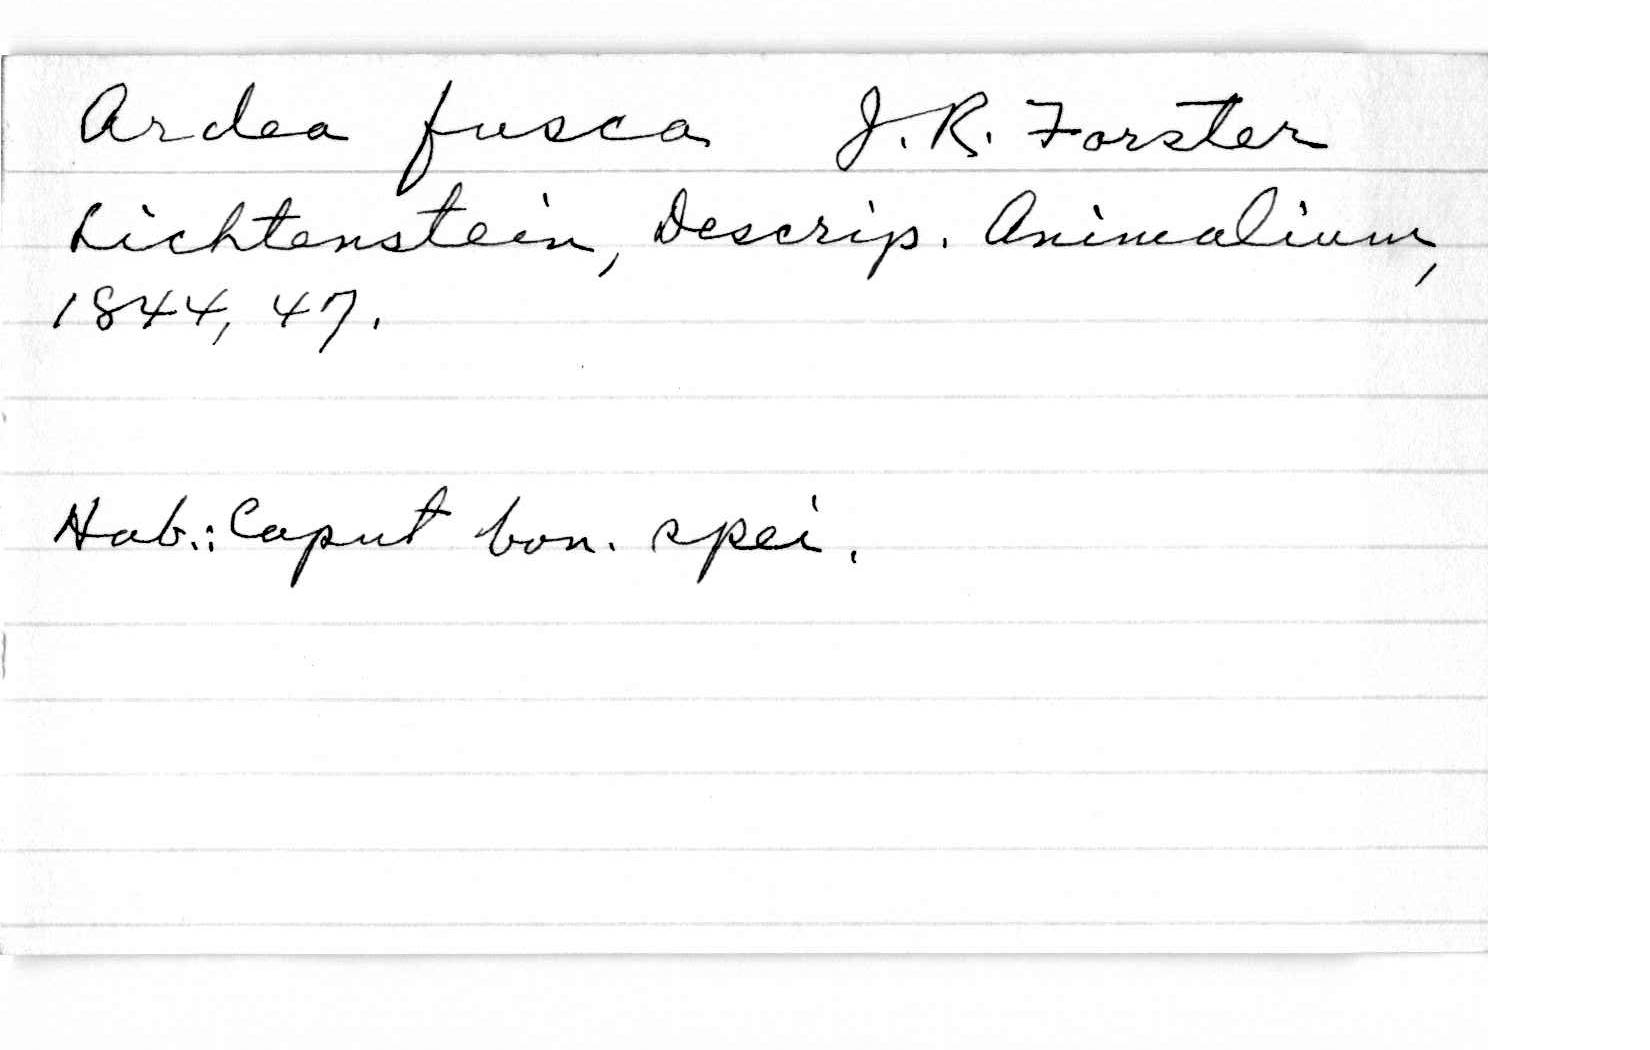 Ardea fusca J. R. Forster
Lichtenstein, Descrip. Animalium,
1844, 47.
Hab.: Caput bon. spei.